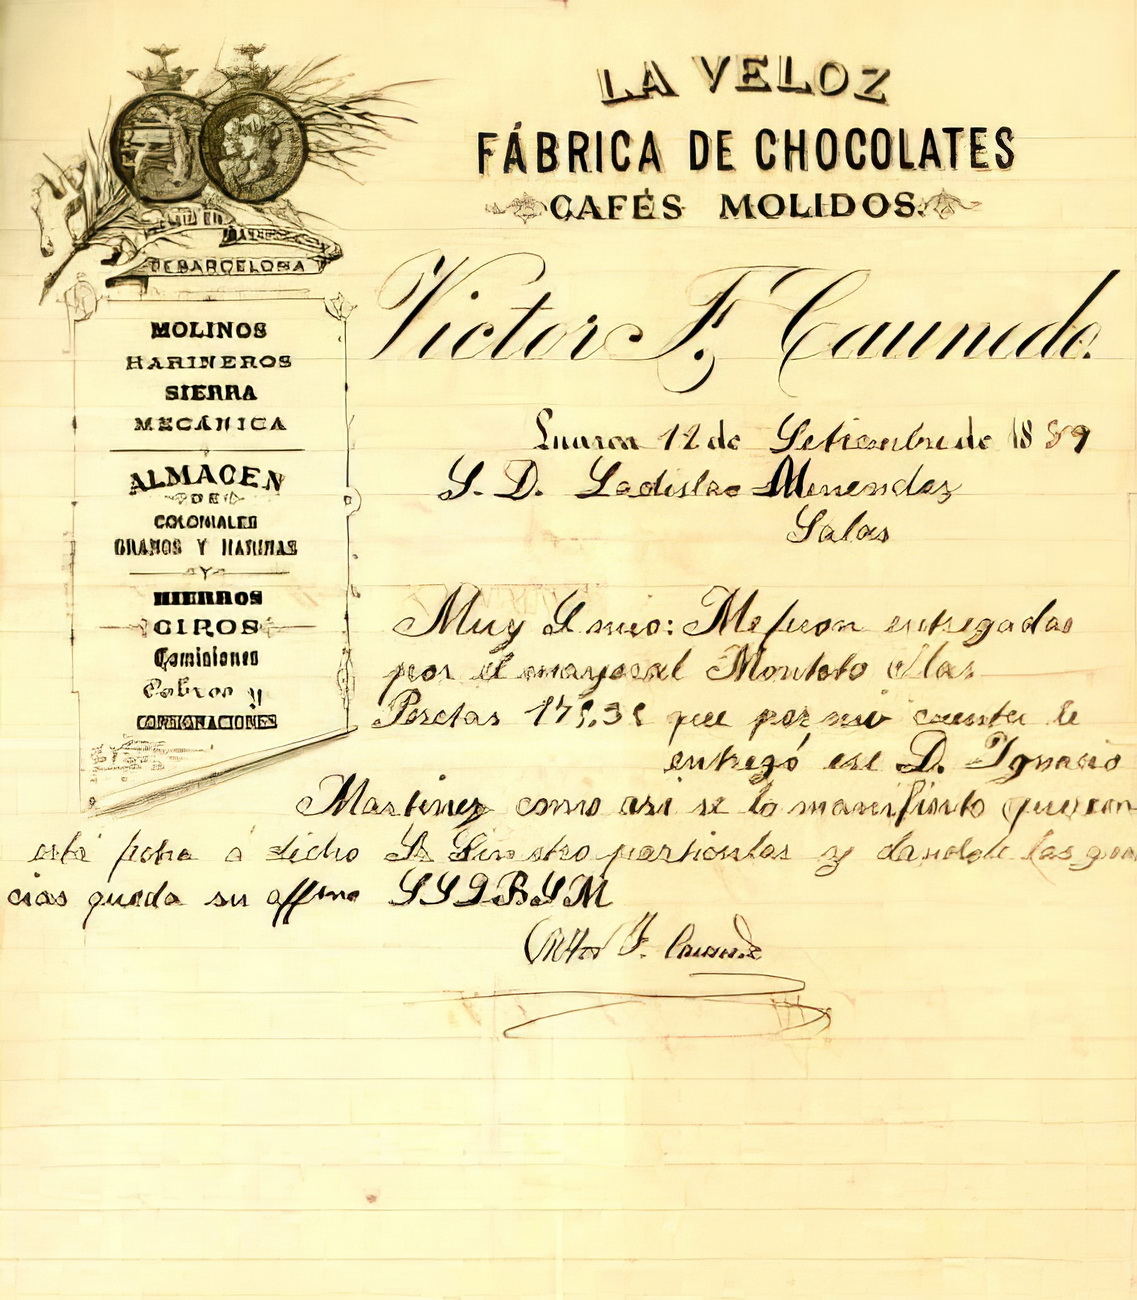 LA VELOZ
FÁBRICA DE CHOCOLATES
CAFÉS MOLIDOS.
Victor F. Caunedo.
DE BARCELONA
MOLINOS
HARINEROS
SIERRA
MECÁNICA
ALMACEN
DE
COLONIALES
GRANOS Y HARINAS
HIERROS
GIROS
Comisiones
Cobros y
CONSIGNACIONES
Luarca 12 de Setiembre de 1889
S. D. Ladislao Menendez
Salas
Muy S mio: Me fueron entregadas
por el mayoral Montoto las
Pesetas 175,35 que por mi cuenta le
entregó ese D. Ignacio
Martinez como asi se lo manifiesto que con
esta fecha á dicho Sr particular y dandole las gra
cias queda su affmo SSQBSM
Victor F. Caunedo